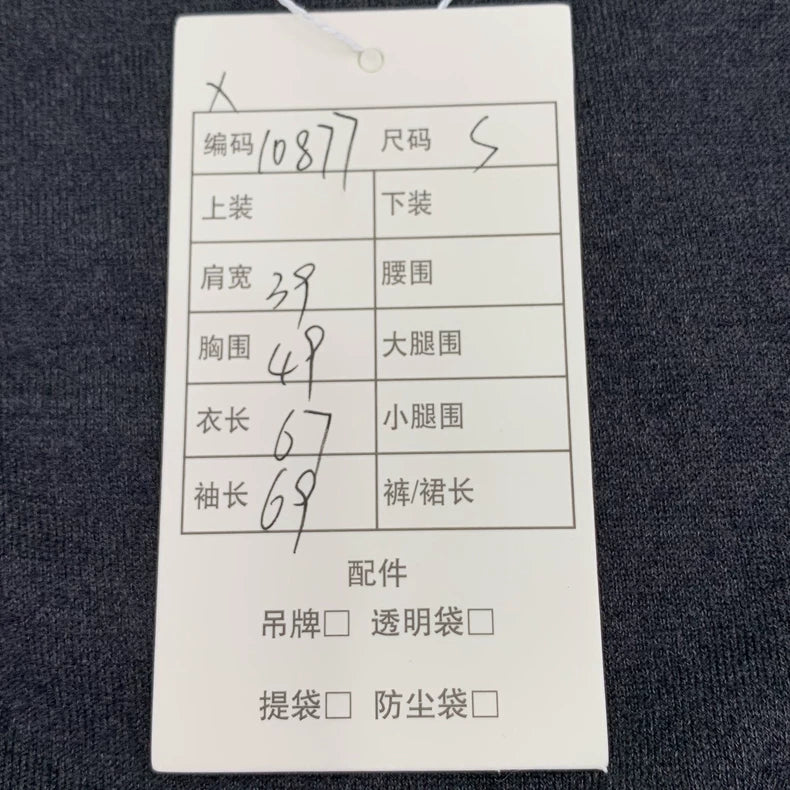 X
编码 10877 尺码 S
上装 下装
肩宽 39 腰围
胸围 49 大腿围
衣长 67 小腿围
袖长 69 裤/裙长
配件
吊牌□ 透明袋□
提袋□ 防尘袋□